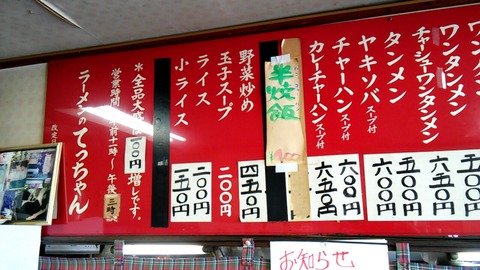 ワンタン
ワンタンメン
チャーシューワンタンメン
タンメン
ヤキソバ スープ付 六〇〇円
チャーハン スープ付 六〇〇円
カレーチャーハン スープ付 六五〇円
半炒飯
野菜炒め 四五〇円
玉子スープ 二〇〇円
ライス 二〇〇円
小ライス 一五〇円
※全品大盛は100円増しです。
営業時間 午前十一時〜午後三時
ラーメンのてっちゃん
改定日
お知らせ